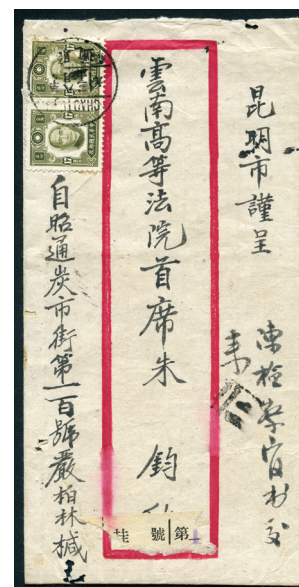 昆明市謹呈
陳檢察官
雲南高等法院首席朱 鈞
自昭通炭市街第一百號嚴柏林椷
號 第